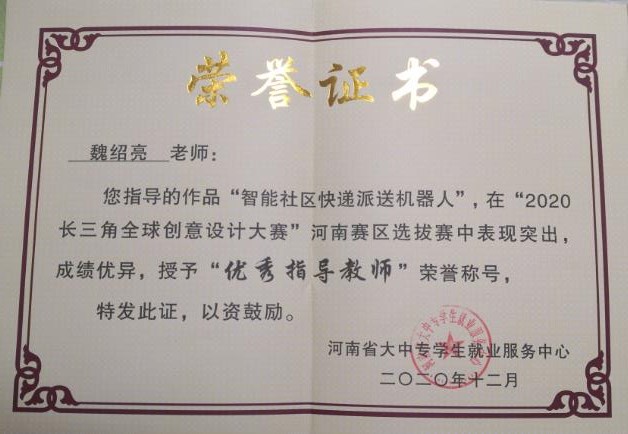 荣誉证书
魏绍亮 老师：
您指导的作品“智能社区快递派送机器人”，在“2020
长三角全球创意设计大赛”河南赛区选拔赛中表现突出，
成绩优异，授予“优秀指导教师”荣誉称号，
特发此证，以资鼓励。
河南省大中专学生就业服务中心
二〇二〇年十二月